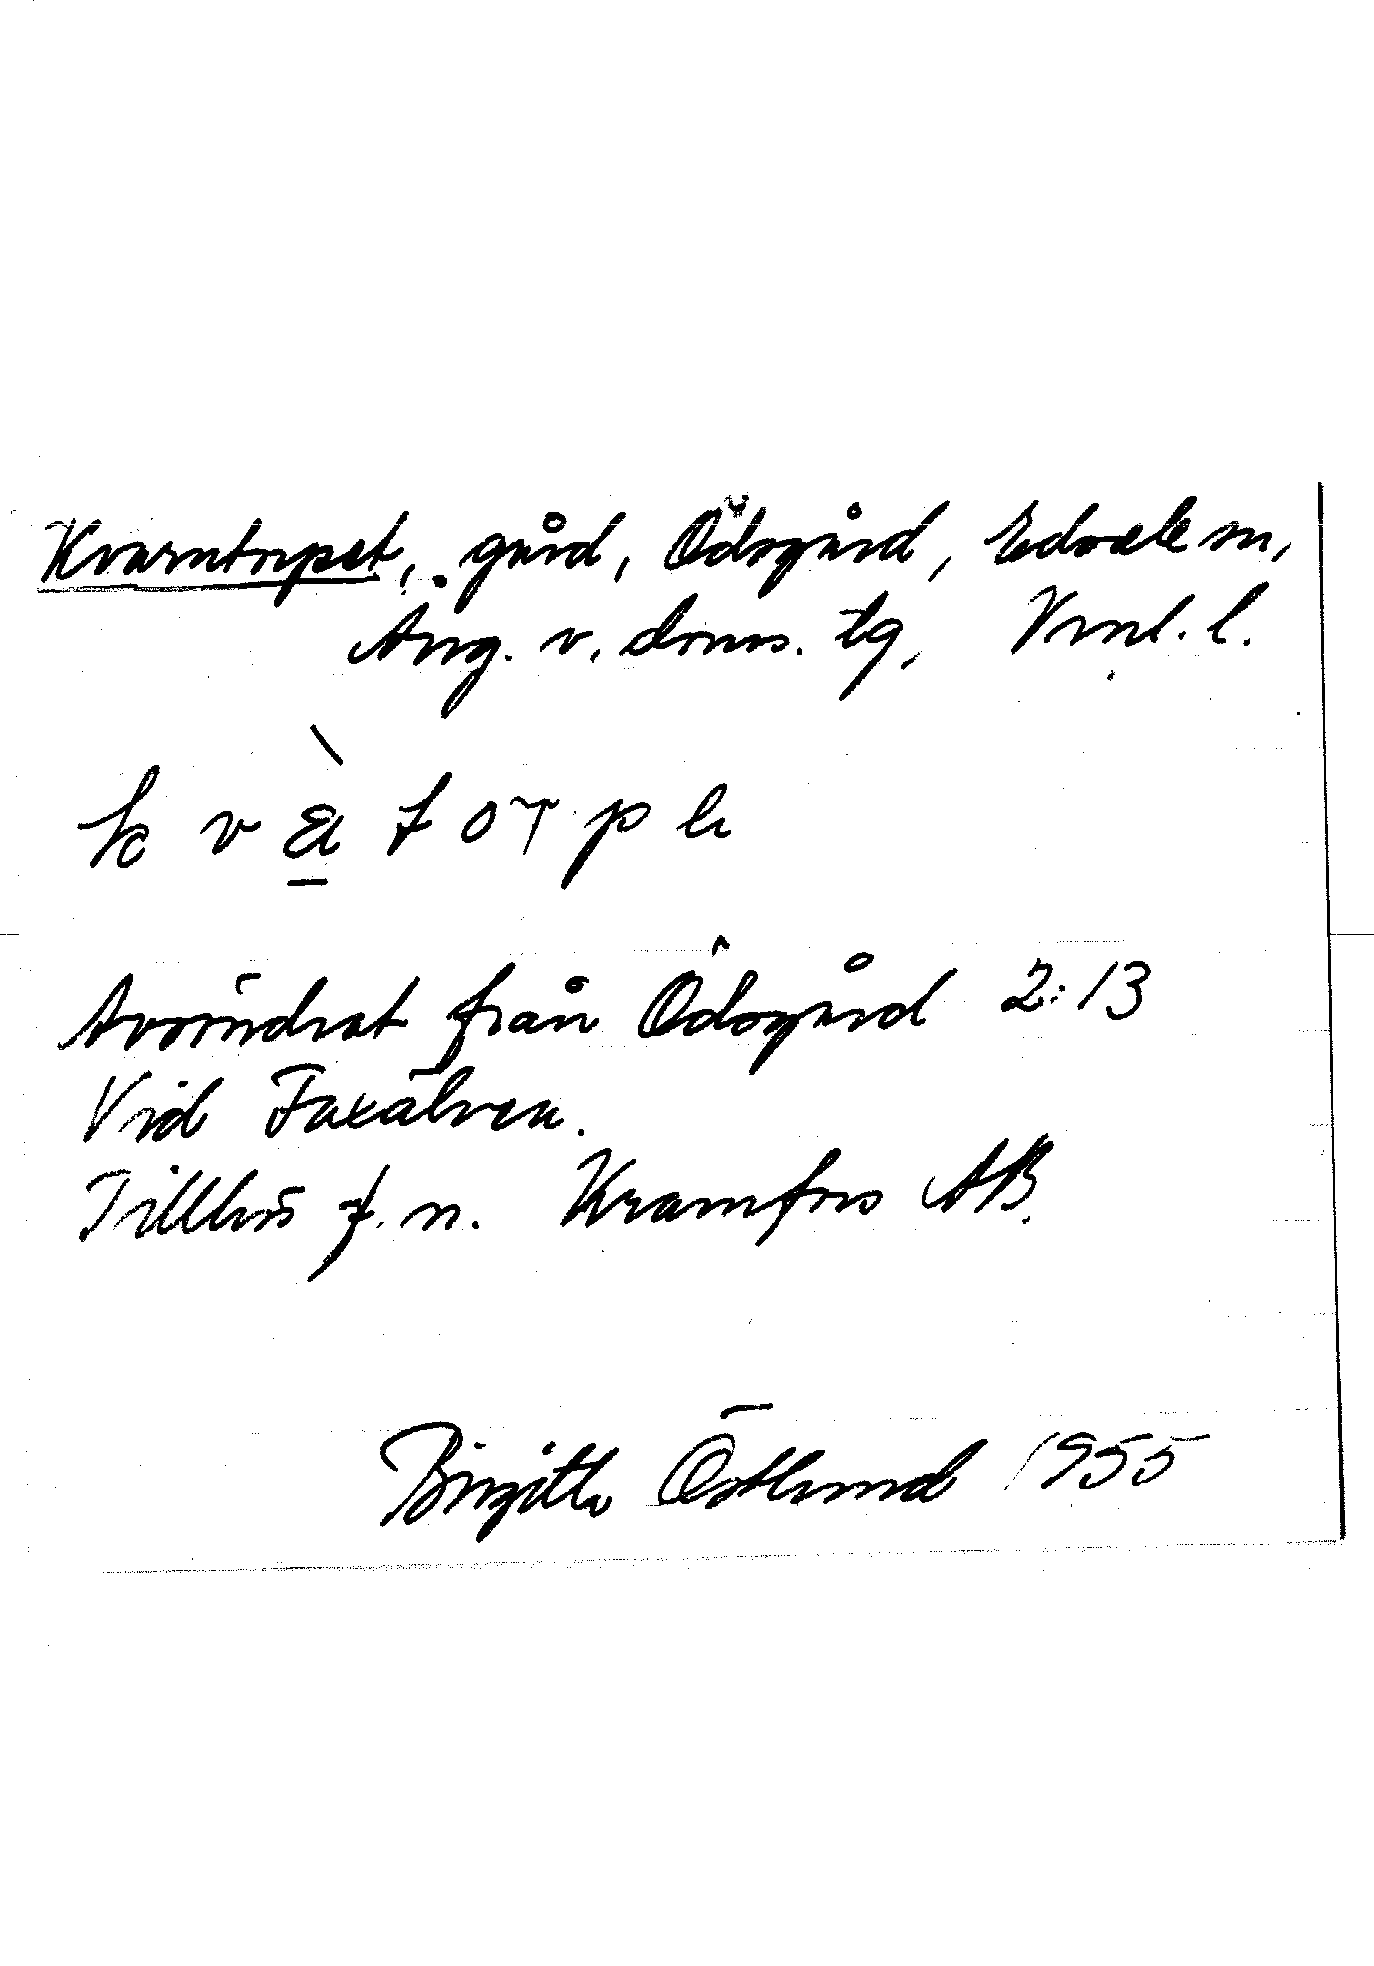 Kvarntorpet, gård, Ödsgård, Edsele sn,
Ång. v. doms. tg, Vrnl. l.
Avsöndrat från Ödsgård 2:13
Vid Faxälven.
Tillhör f. n. Kramfors AB.
Birgitta Östlund 1955